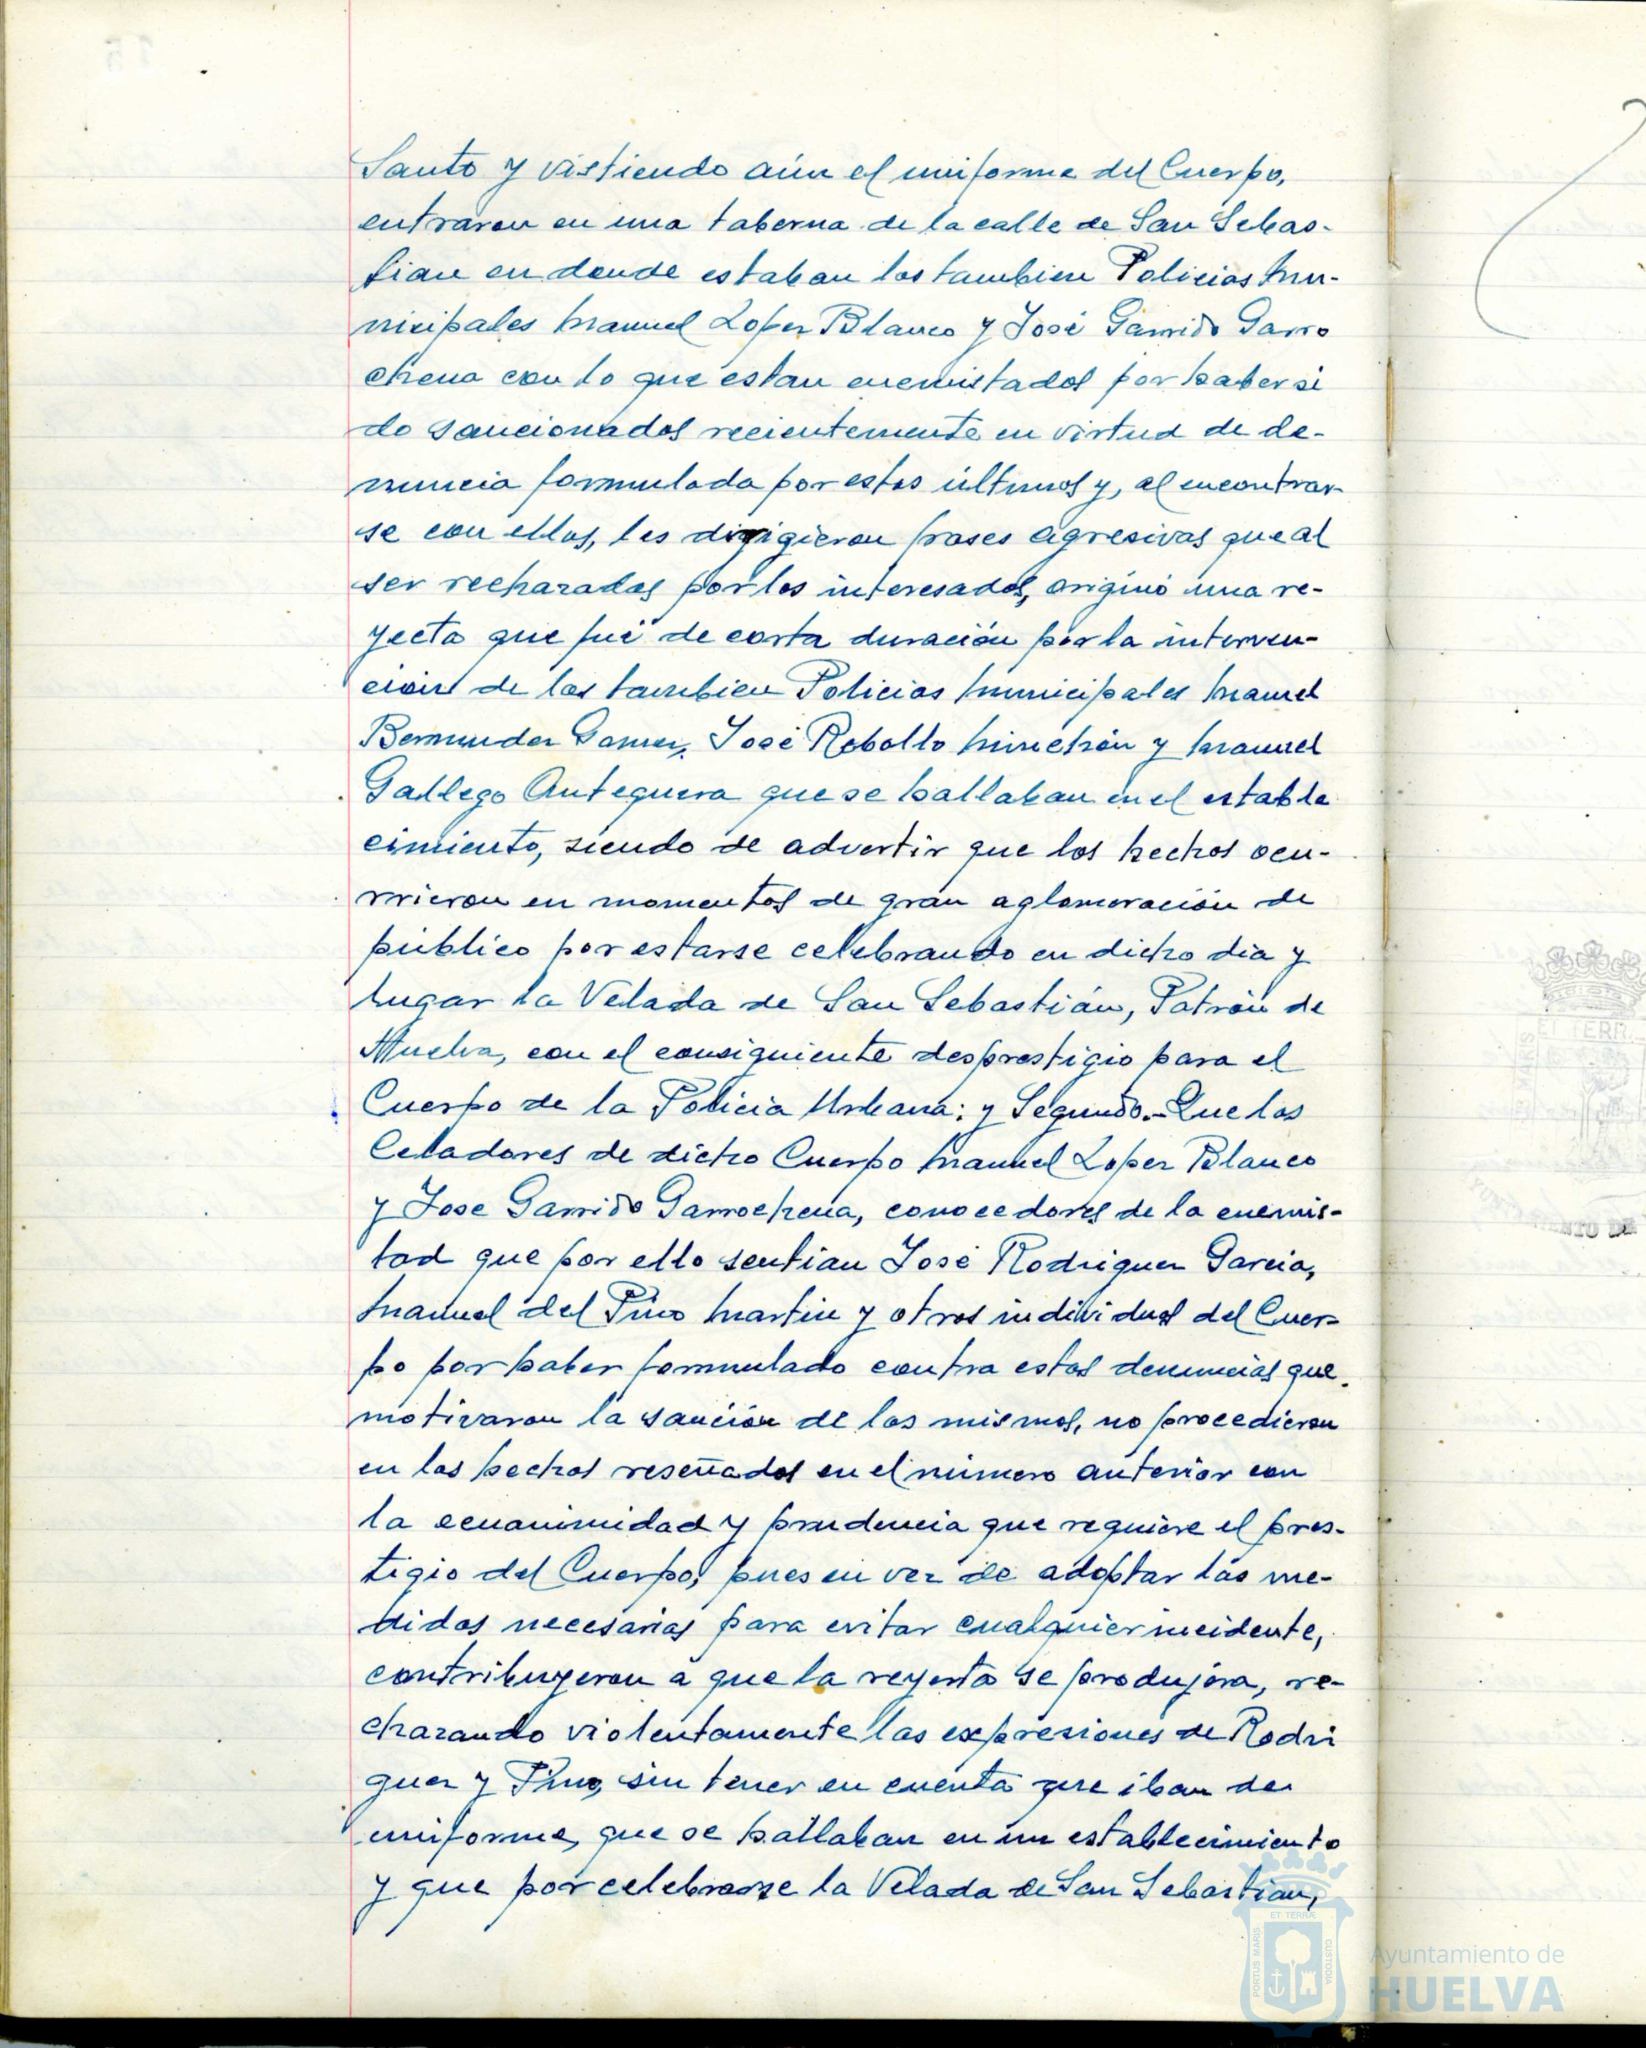 Santo y vistiendo aún el uniforme del Cuerpo,
entraron en una taberna de la calle de San Sebas-
tian en donde estaban los tambien Policias Mu-
nicipales Manuel Lopez Blanco y José Garrido Garro
chena con lo que estan enemistados por haber si
do sancionados recientemente en virtud de de-
nuncia formulada por estos últimos y, al encontrar-
se con ellos, les dirigieron frases agresivas que al
ser rechazadas por los interesados, originó una re-
yecta que fué de corta duración por la interven-
ción de los tambien Policias Municipales Manuel
Bermudez Gomez, José Rebollo Minchón y Manuel
Gallego Antequera que se hallaban en el estable
cimiento, siendo de advertir que los hechos ocu-
rrieron en momentos de gran aglomeración de
público por estarse celebrando en dicho dia y
lugar la Velada de San Sebastián, Patrón de
Huelva, con el consiguiente desprestigio para el
Cuerpo de la Policia Urbana: y Segundo.- Que los
Celadores de dicho Cuerpo Manuel Lopez Blanco
y Jose Garrido Garrochena, conocedores de la enemis-
tad que por ello sentian José Rodriguez Garcia,
Manuel del Pino Martin y otros individuos del Cuer-
po por haber formulado contra estos denuncias que
motivaron la sanción de los mismos, no procedieron
en los hechos reseñados en el número anterior con
la ecuanimidad y prudencia que requiere el pres-
tigio del Cuerpo, pues en vez de adoptar las me-
didas necesarias para evitar cualquier incidente,
contribuyeron a que la reyerta se produjera, re-
chazando violentamente las expresiones de Rodri
guez y Pino, sin tener en cuenta que iban de
uniforme, que se hallaban en un establecimiento
y que por celebrarse la Velada de San Sebastian,
ET TERRÆ
PORTUS MARIS
CUSTODIA
Ayuntamiento de
HUELVA